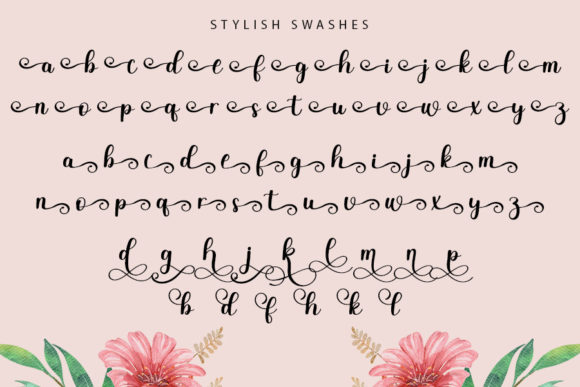 STYLISH SWASHES
a b c d e f g h i j k l m
n o p q r s t u v w x y z
a b c d e f g h i j k m
n o p q r s t u v w x y z
d g h j k l m n p
b d f h k l